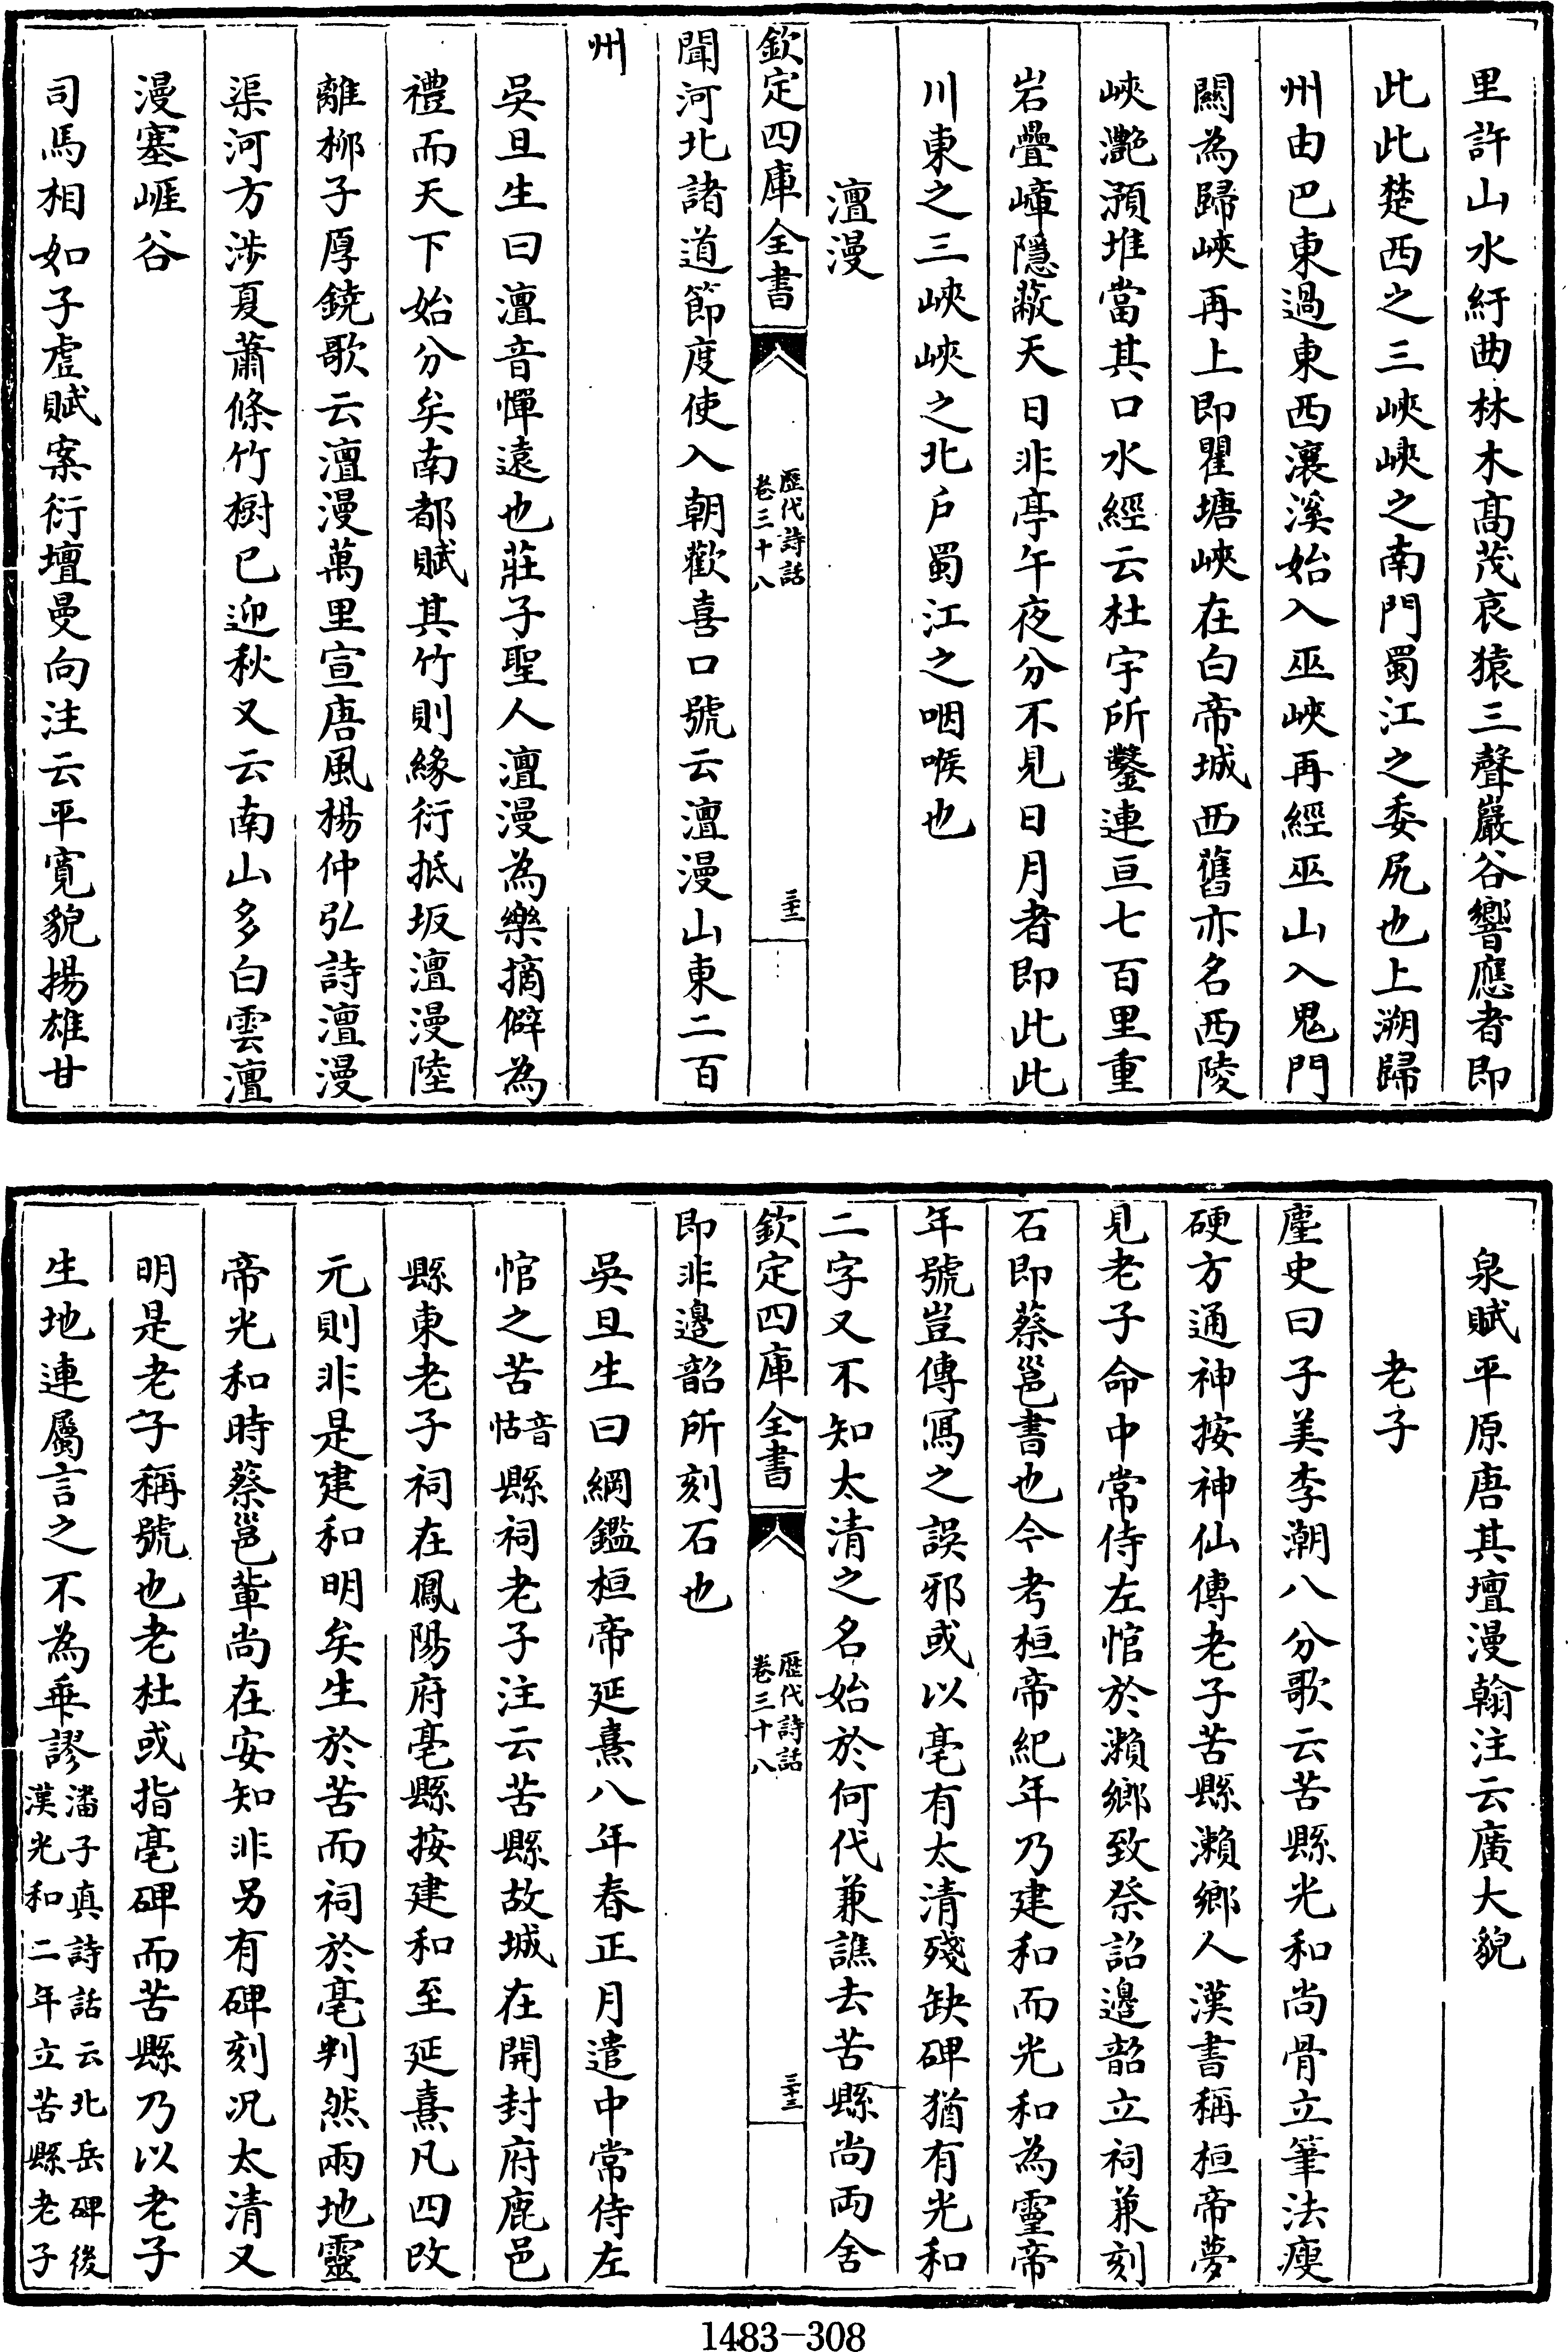 里許山水紆曲林木髙茂哀猿三聲巖谷響應者即
此此楚西之三峽峽之南門蜀江之委尻也上溯歸
州由巴東過東西瀼溪始入巫峽再經巫山入鬼門
闗為歸峽再上即瞿塘峽在白帝城西舊亦名西陵
峽灔澦堆當其口水經云杜宇所鑿連亘七百里重
岩疊嶂隱蔽天日非亭午夜分不見日月者即此此
川東之三峽峽之北户蜀江之咽喉也
澶漫
欽定四庫全書
歴代詩話
卷三十八
三十二
聞河北諸道節度使入朝歡喜口號云澶漫山東二百
州
吳旦生曰澶音憚遠也莊子聖人澶漫為樂摘僻為
禮而天下始分矣南都賦其竹則緣衍抵坂澶漫陸
離栁子厚鐃歌云澶漫萬里宣唐風楊仲弘詩澶漫
渠河方涉夏蕭條竹樹已迎秋又云南山多白雲澶
漫塞崕谷
司馬相如子虛賦案衍壇曼向注云平寬貌揚雄甘
泉賦平原唐其壇漫翰注云廣大貌
老子
麈史曰子美李潮八分歌云苦縣光和尚骨立筆法瘦
硬方通神按神仙傳老子苦縣瀨鄉人漢書稱桓帝夢
見老子命中常侍左悺於瀨鄉致祭詔邉韶立祠兼刻
石即蔡邕書也今考桓帝紀年乃建和而光和為靈帝
年號豈傳寫之誤邪或以亳有太清殘缺碑猶有光和
二字又不知太清之名始於何代兼譙去苦縣尚两舍
欽定四庫全書
歴代詩話
卷三十八
三十三
即非邉韶所刻石也
吳旦生曰綱鑑桓帝延熹八年春正月遣中常侍左
悺之苦音怙縣祠老子注云苦縣故城在開封府鹿邑
縣東老子祠在鳳陽府亳縣按建和至延熹凡四改
元則非是建和明矣生於苦而祠於亳判然兩地靈
帝光和時蔡邕輩尚在安知非另有碑刻况太清又
明是老子稱號也老杜或指亳碑而苦縣乃以老子
生地連屬言之不為乖謬潘子真詩話云北岳碑後漢光和二年立苦縣老子
1483-308